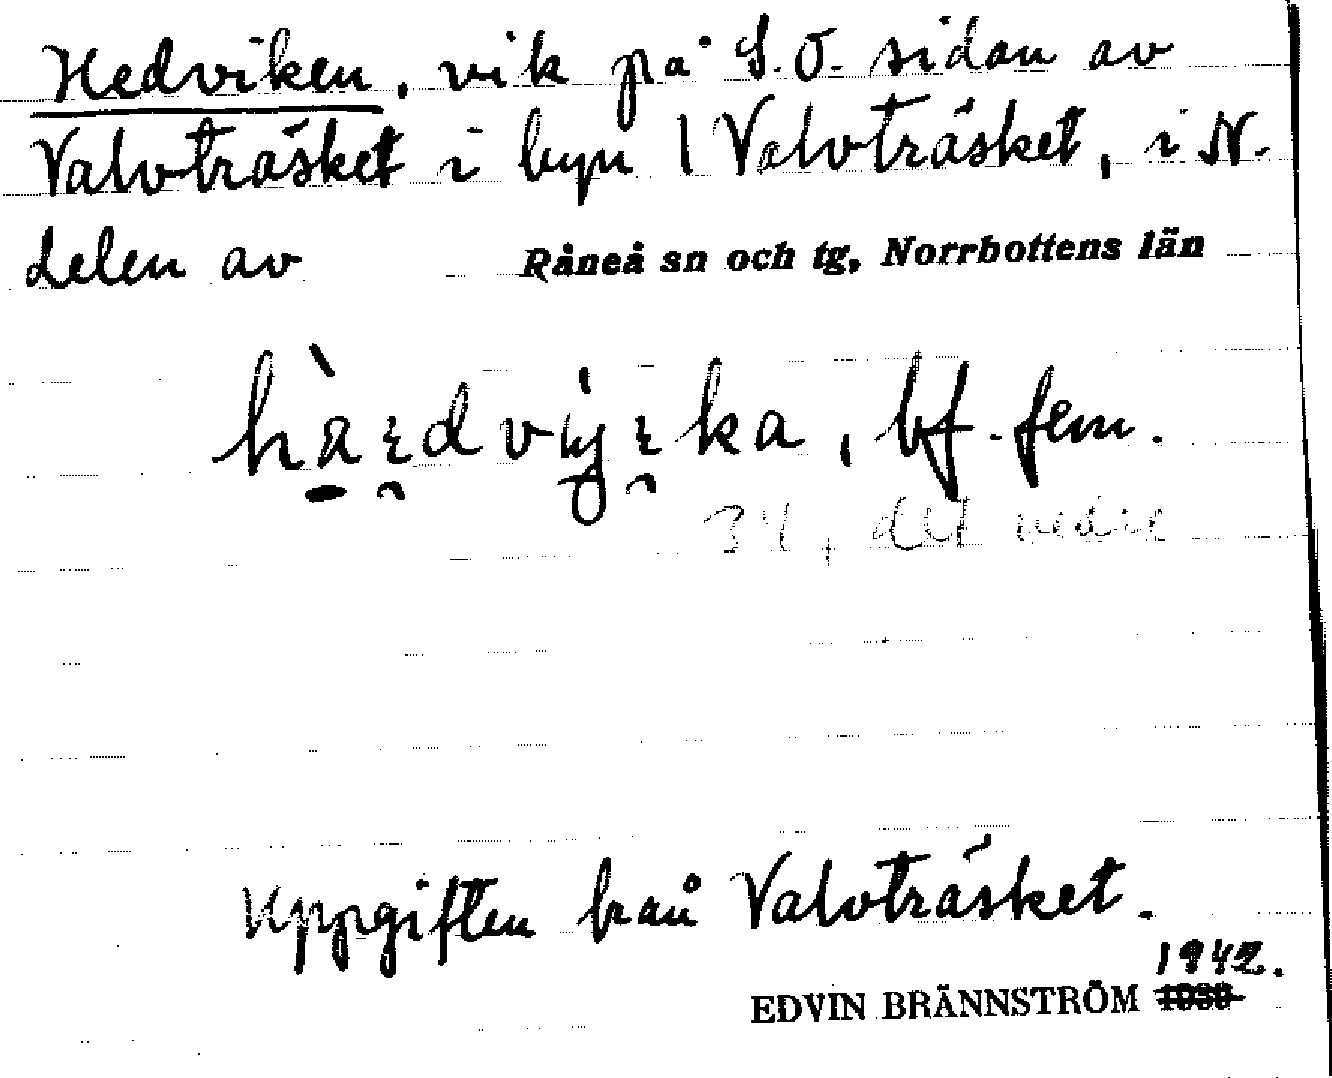 Hedviken, vik på S.O. sidan av
Valvträsket i byn 1 Valvträsket, i N.
delen av Råneå sn och tg, Norrbottens län
bf. fem.
det nedre
Uppgiften från Valvträsket.
1942.
EDVIN BRÄNNSTRÖM 1930